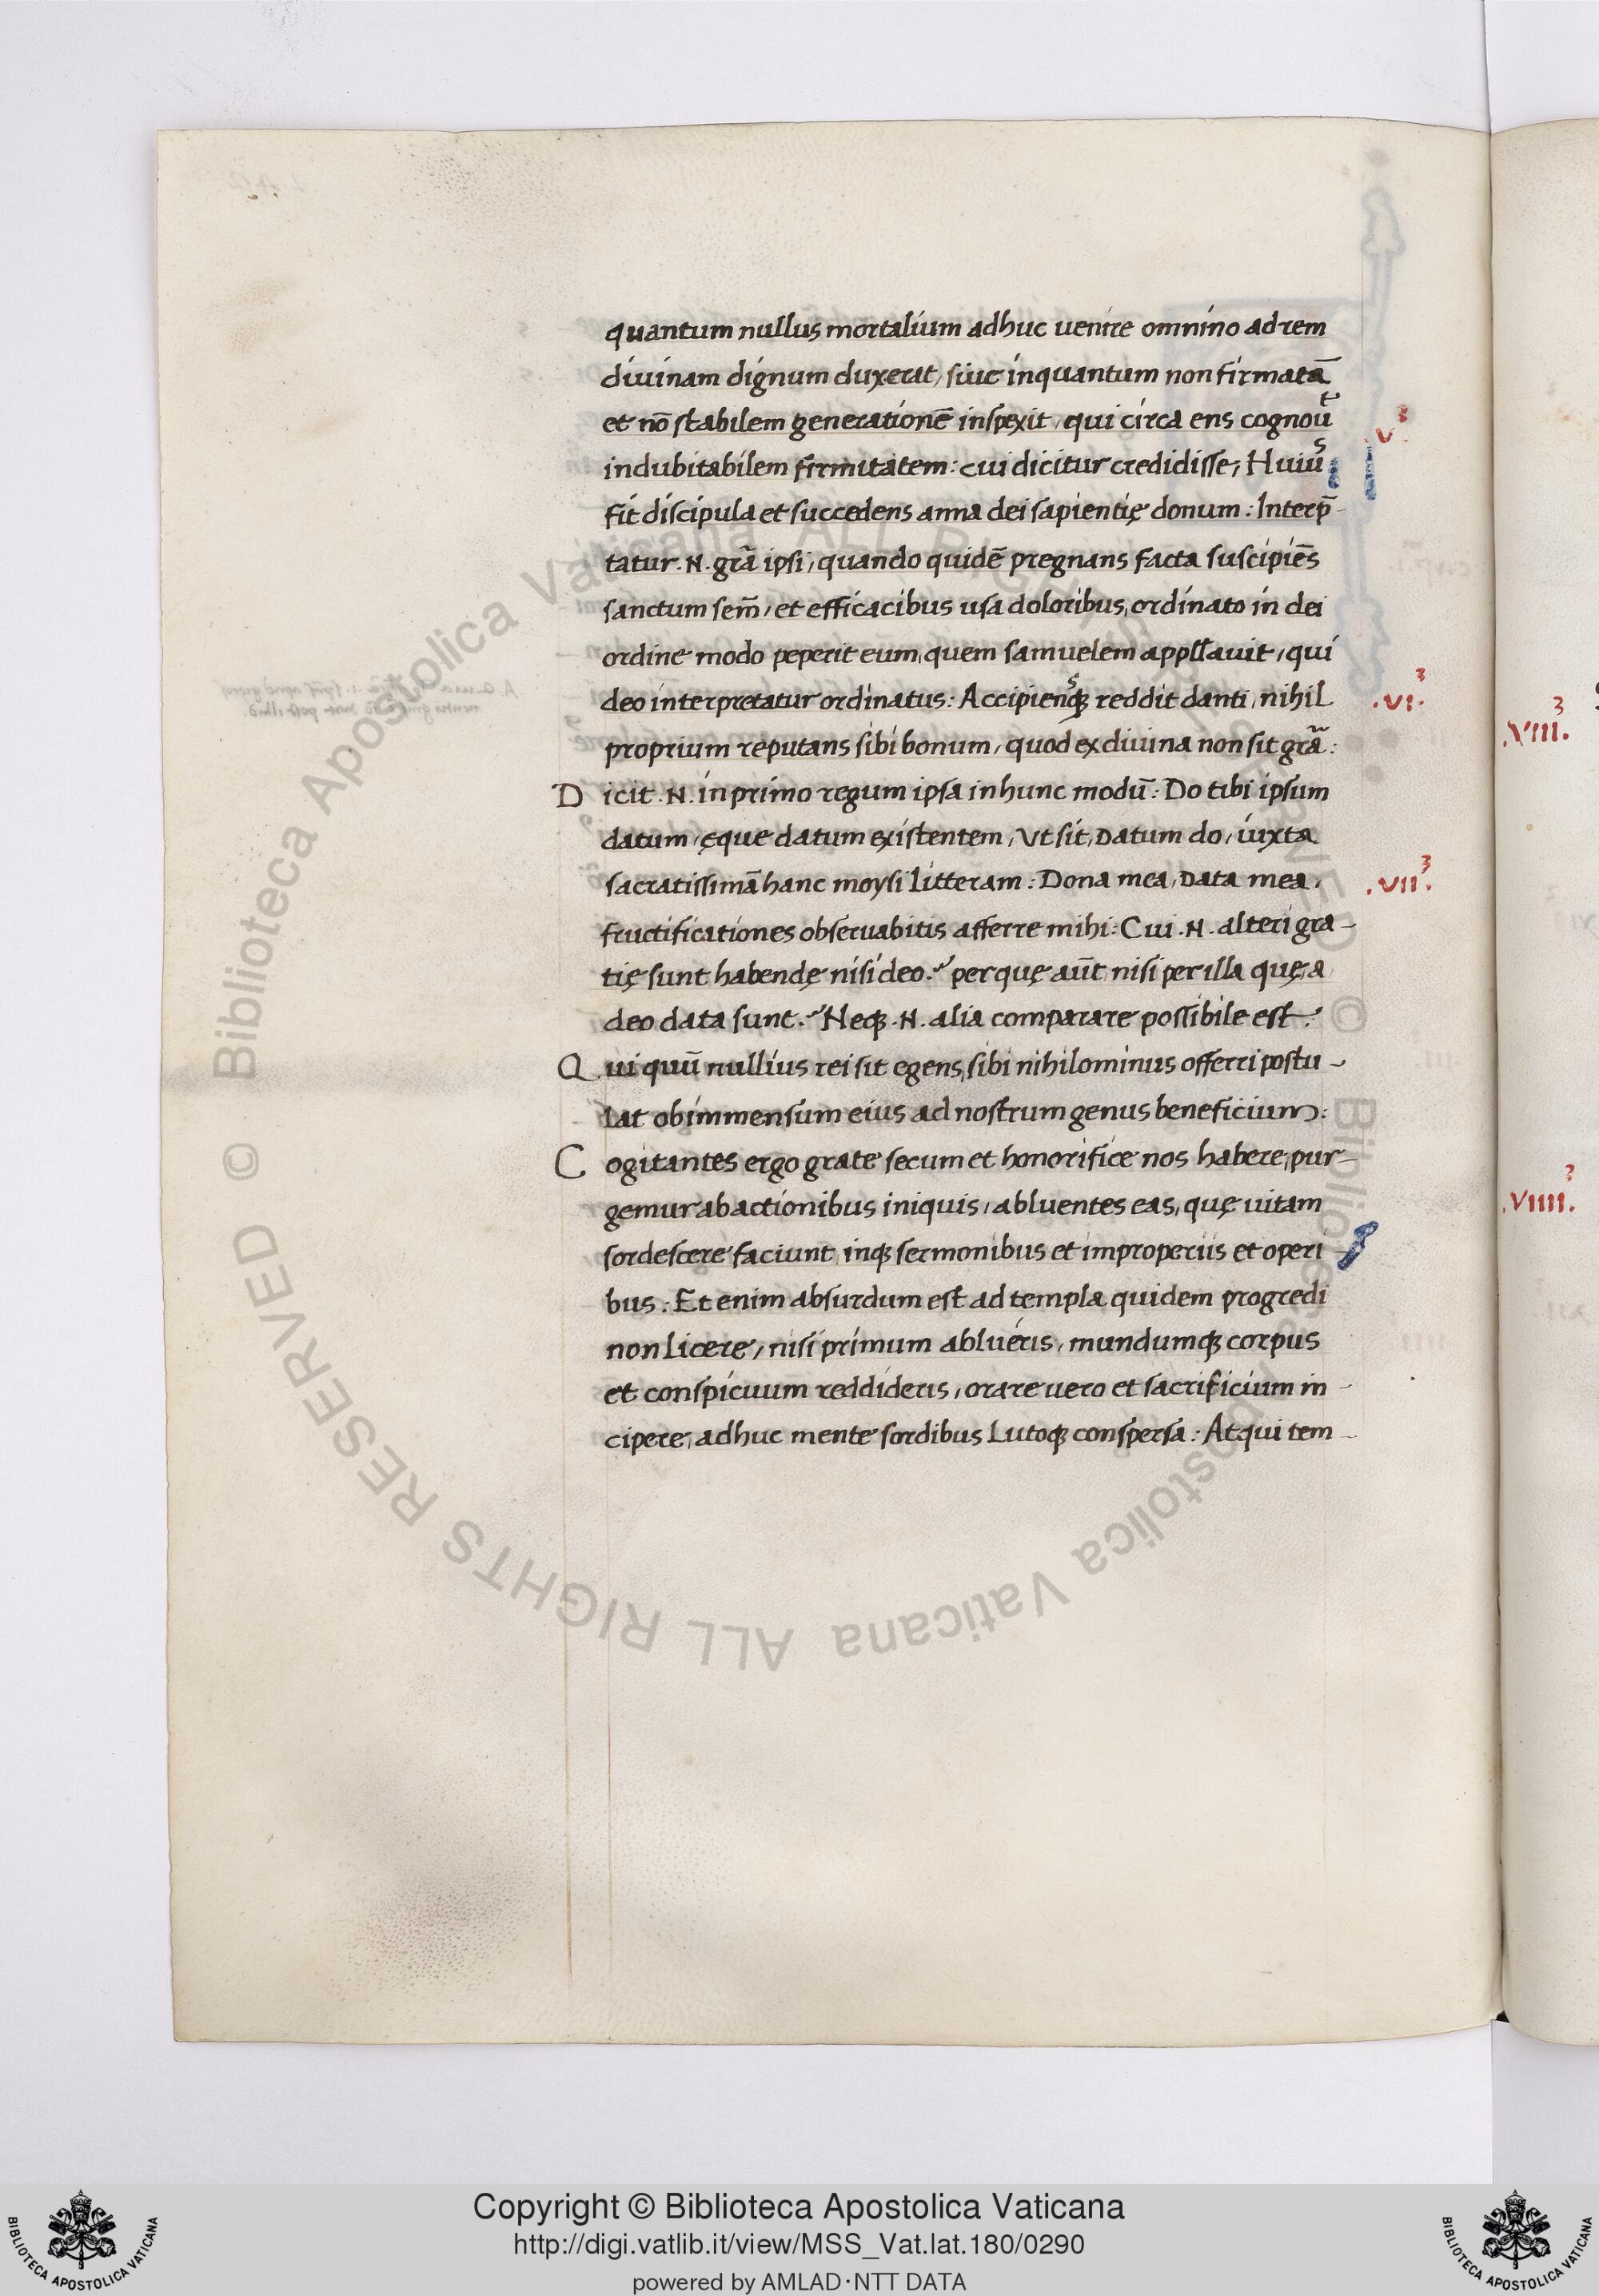 quantum nullus mortalium adhuc uenire omnino ad rem
diuinam dignum duxerat, siue inquantum non firmatā
et nō stabilem generationē inspexit, qui circa ens cognoūt
indubitabilem firmitatem: cui dicitur credidisse; Huiūs
fit discipula et succedens anna dei sapientię donum: Interp̄
tatur .N. grā ipsi, quando quidē pregnans facta suscipiēs
sanctum sem̄, et efficacibus usa doloribus, ordinato in dei
ordine modo peperit eum, quem samuelem appllauit, qui
deo interpretatur ordinatus: Accipiensq; reddit danti, nihil
proprium reputans sibi bonum, quod ex diuina non sit grā:
Dicit .N. in primo regum ipsa in hunc modū: Do tibi ipsum
datum, ęque datum existentem, Vt sit, Datum do, iuxta
sacratissimā hanc moysi litteram: Dona mea, Data mea,
fructificationes obseruabitis afferre mihi: Cui .N. alteri gra-
tię sunt habendę nisi deo? per quę aūt nisi per illa quę a
deo data sunt? Neq; .N. alia comparare possibile est:
Qui quū nullius rei sit egens, sibi nihilominus offerri postu-
lat ob immensum eius ad nostrum genus beneficium:
Cogitantes ergo grate secum et honorifice nos habere, pur-
gemur ab actionibus iniquis, abluentes eas, quę uitam
sordescere faciunt, inq; sermonibus et improperiis et operi-
bus: Et enim absurdum est ad templa quidem progredi
non licere, nisi primum abluéris, mundumq; corpus
et conspicuum reddideris, orare uero et sacrificium in-
cipere, adhuc mente sordibus Lutoq; conspersa: Atqui tem-
.V.3
.VI.3
.VII.3
.VIII.3
.VIIII.3
© Biblioteca Apostolica Vaticana ALL RIGHTS RESERVED
© Biblioteca Apostolica Vaticana ALL RIGHTS RESERVED
Copyright © Biblioteca Apostolica Vaticana
http://digi.vatlib.it/view/MSS_Vat.lat.180/0290
powered by AMLAD·NTT DATA
BIBLIOTECA APOSTOLICA VATICANA
BIBLIOTECA APOSTOLICA VATICANA